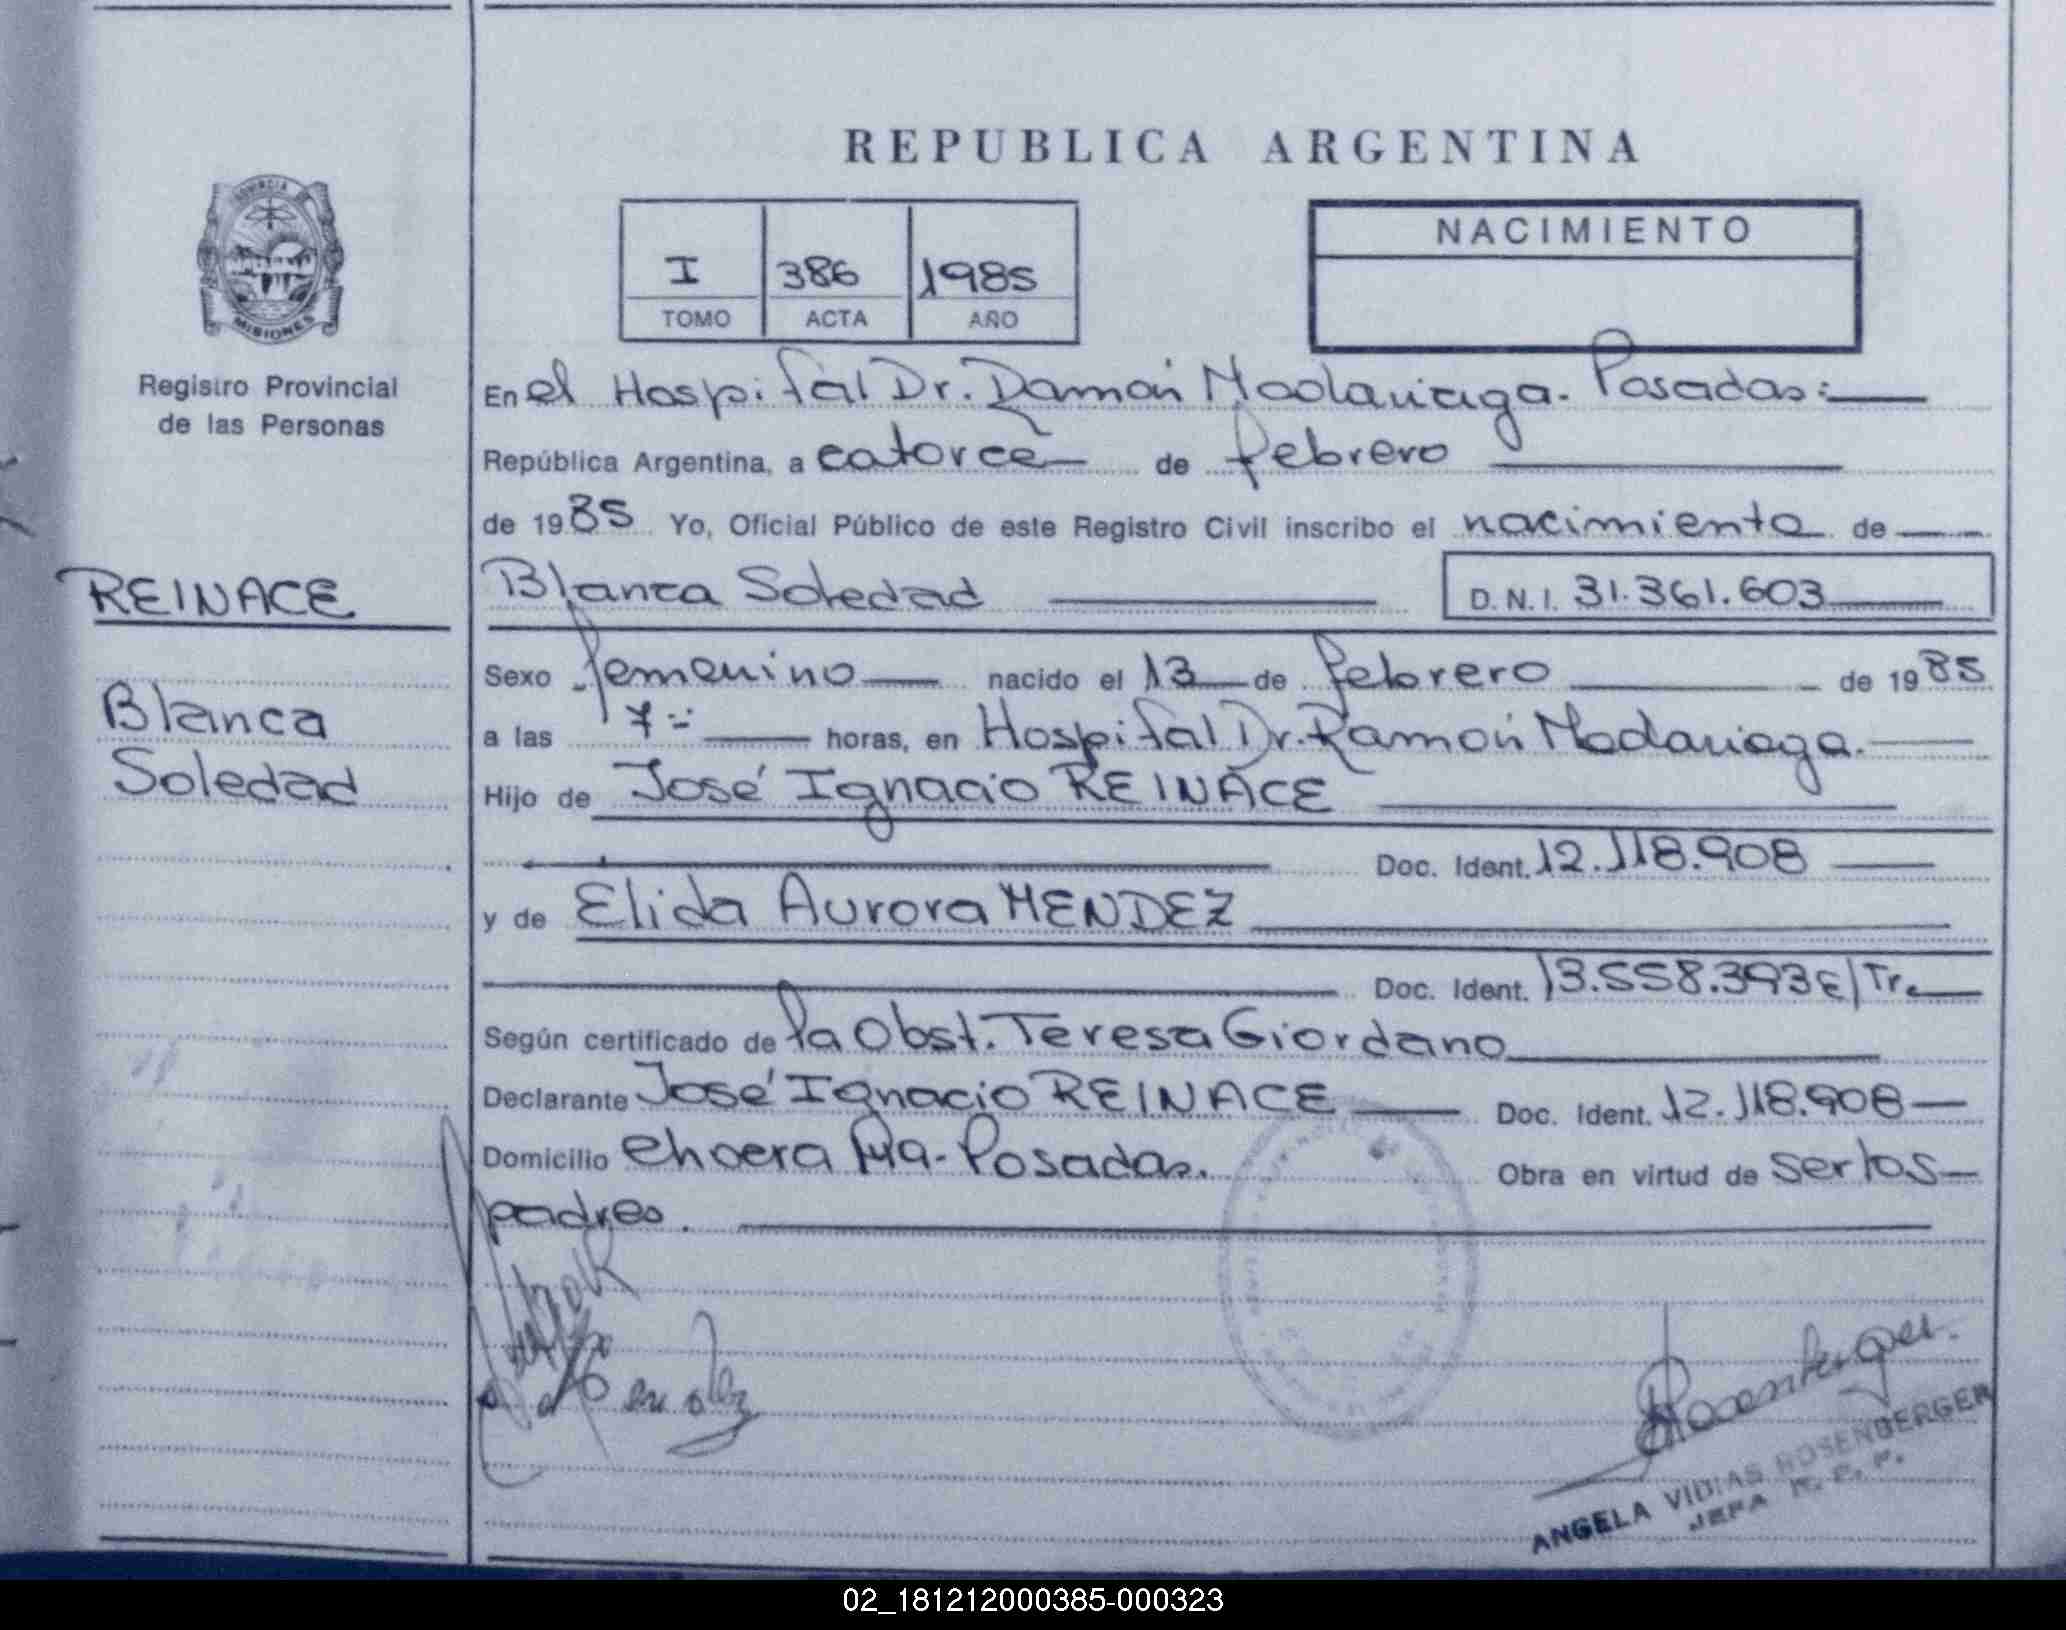 REPUBLICA ARGENTINA
PROVINCIA
MISIONES
Registro Provincial
de las Personas
I 386 1985
TOMO ACTA AÑO
NACIMIENTO
En el Hospital Dr. Ramón Madariaga. Posadas:
República Argentina, a catorce de febrero
de 1985 Yo, Oficial Público de este Registro Civil inscribo el nacimiento de
REINACE
Blanca Soledad D.N.I. 31.361.603
Blanca
Soledad
Sexo femenino nacido el 13 de febrero de 1985
a las 7 horas, en Hospital Dr. Ramón Madariaga.
Hijo de José Ignacio REINACE
Doc. Ident. 12.118.908
y de Elida Aurora MENDEZ
Doc. Ident. 13.558.393 E/Tr.
Según certificado de la Obst. Teresa Giordano
Declarante José Ignacio REINACE Doc. Ident. 12.118.908
Domicilio Posadas. Obra en virtud de ser los
padres.
Rosenberger
ANGELA VIDIAS ROSENBERGER
JEFA R. P. P.
02_181212000385-000323